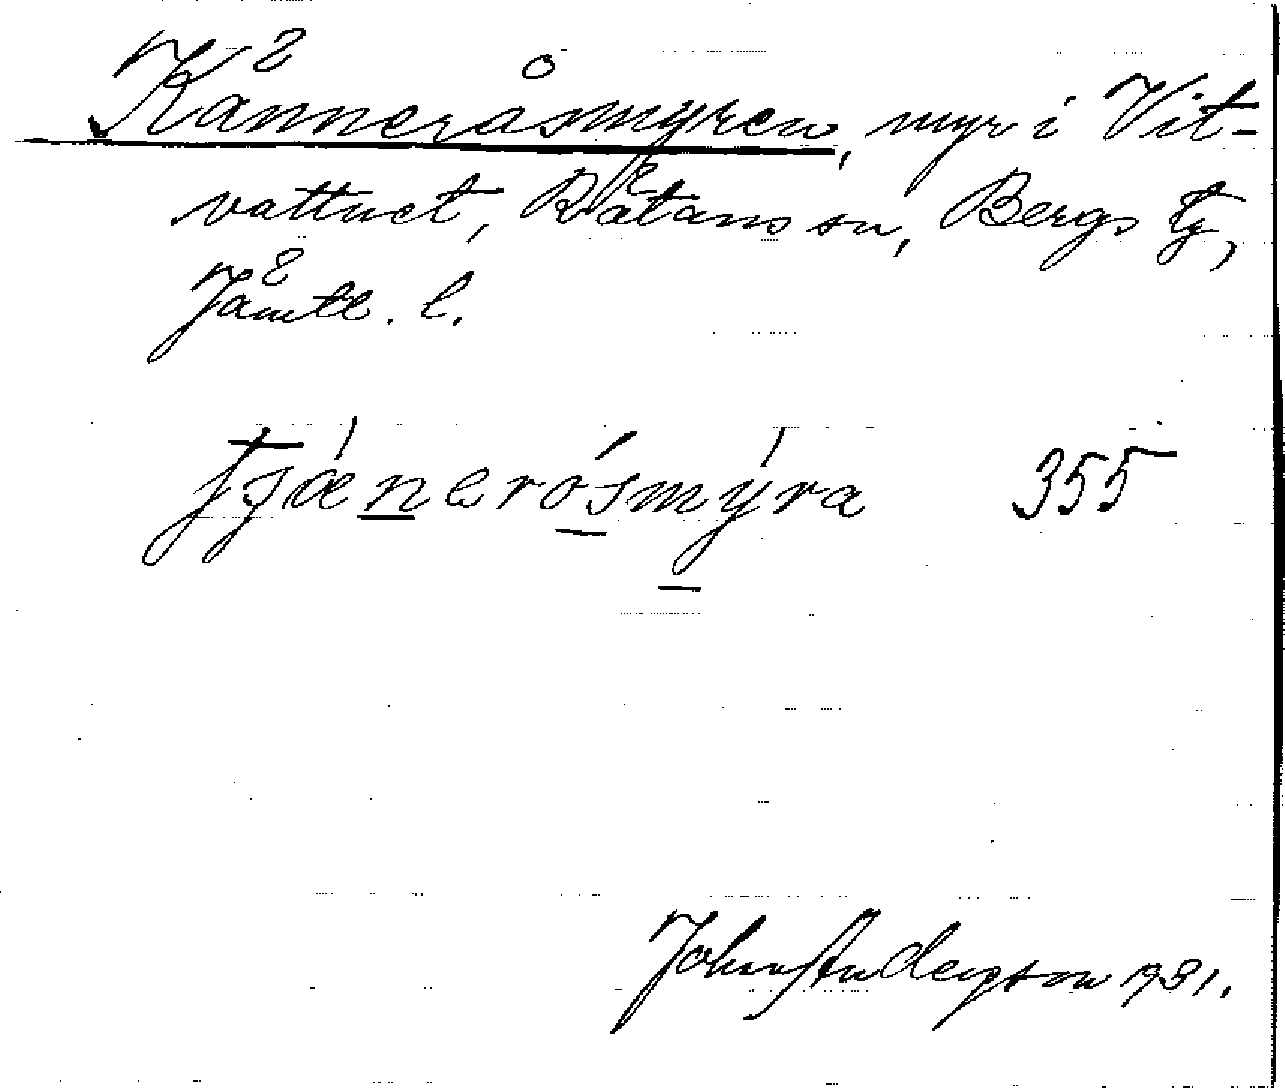 Känneråsmyren, myr i Vit-
vattnet, Rätans sn, Bergs tg,
Jämtl. l.
tjä́nerósmýra 355
John Andersson 1931.